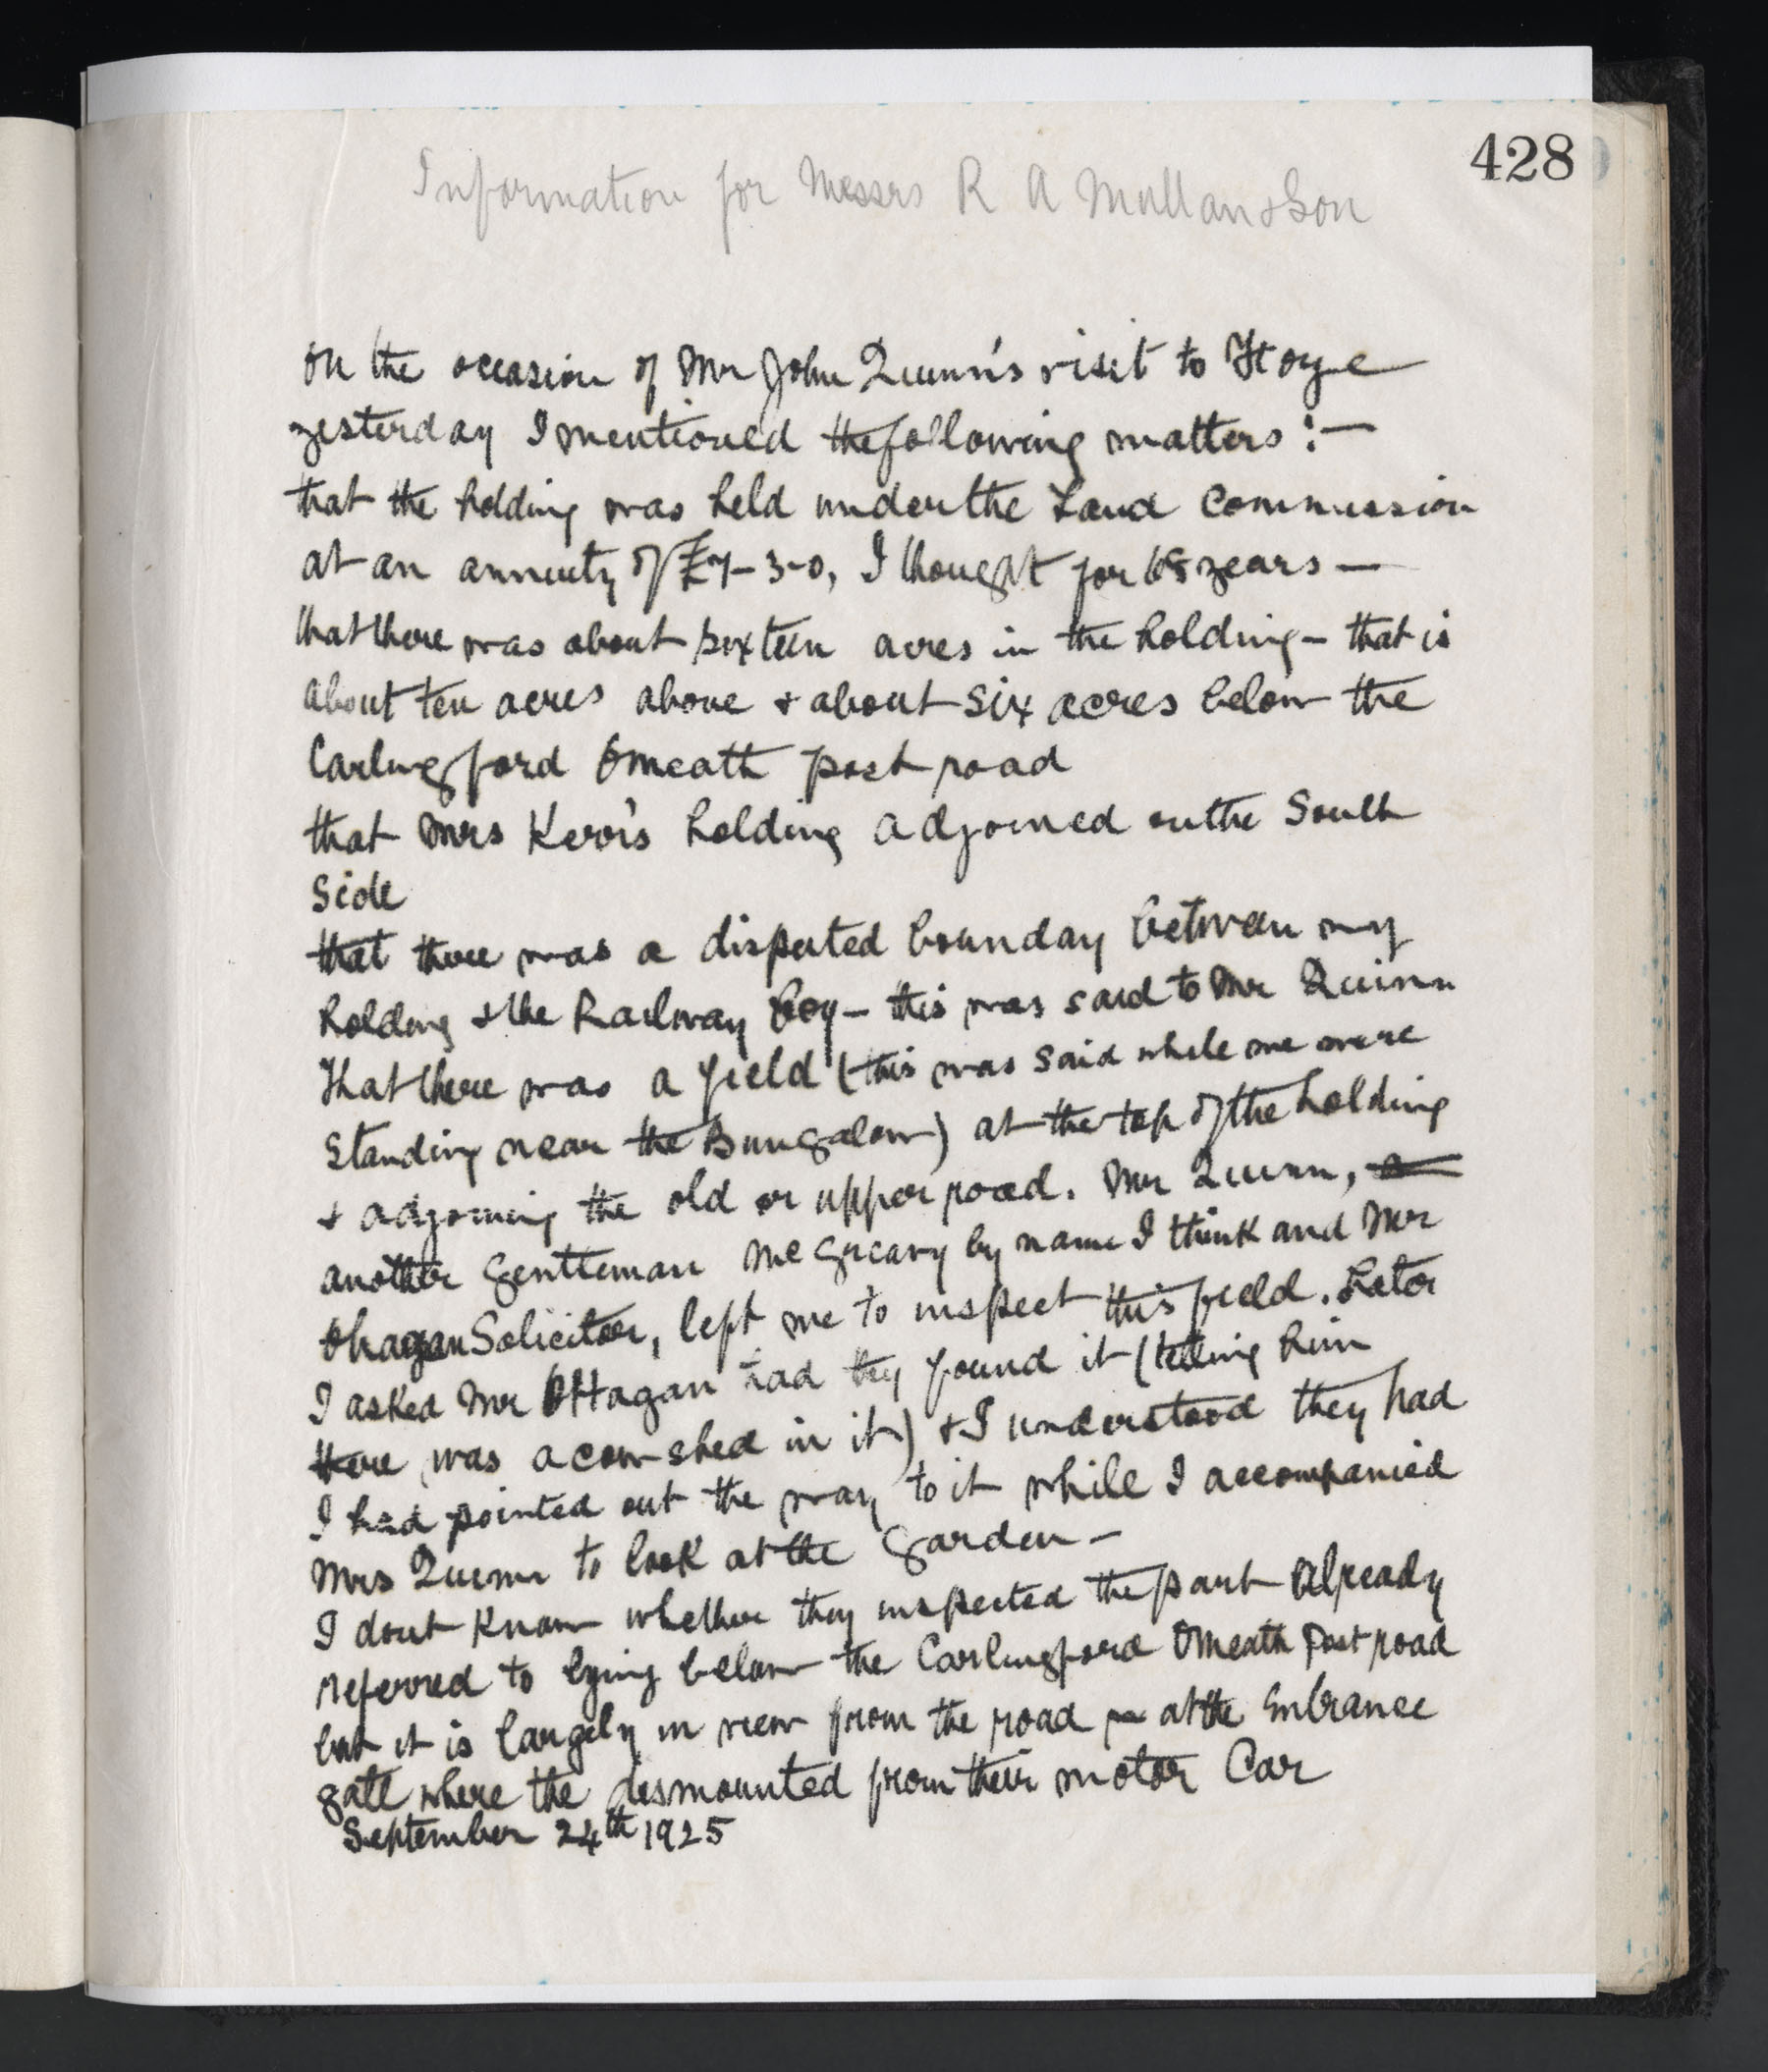 428
Information for Messrs R A Mullan & Son
On the occasion of Mr John Quinn's visit to
yesterday I mentioned the following matters :—
that the holding was held under the Land Commission
at an annuity of £7-3-0, I thought for 68 years —
that there was about sixteen acres in the holding — that is
about ten acres above & about six acres below the
Carlingford Omeath post road
that Mrs Kerr's holding adjoined on the South
Side
that there was a disputed bounday between my
holding & the Railway Coy — this was said to Mr Quinn
That there was a field (this was said while we were
standing near the Bungalow) at the top of the holding
& adjoining the old or upper road. Mr Quinn, a
another Gentleman McGreavy by name I think and Mr
Ohagan Solicitor, left me to inspect this field. Later
I asked Mr OHagan had they found it (telling him
there was a cow-shed in it) & I understood they had
I had pointed out the way to it while I accompanied
Mrs Quinn to look at the Garden —
I dont know whether they inspected the part Already
referred to lying below the Carlingford Omeath Post road
but it is largely in view from the road at the Entrance
gate where the dismounted from their motor Car
September 24th 1925